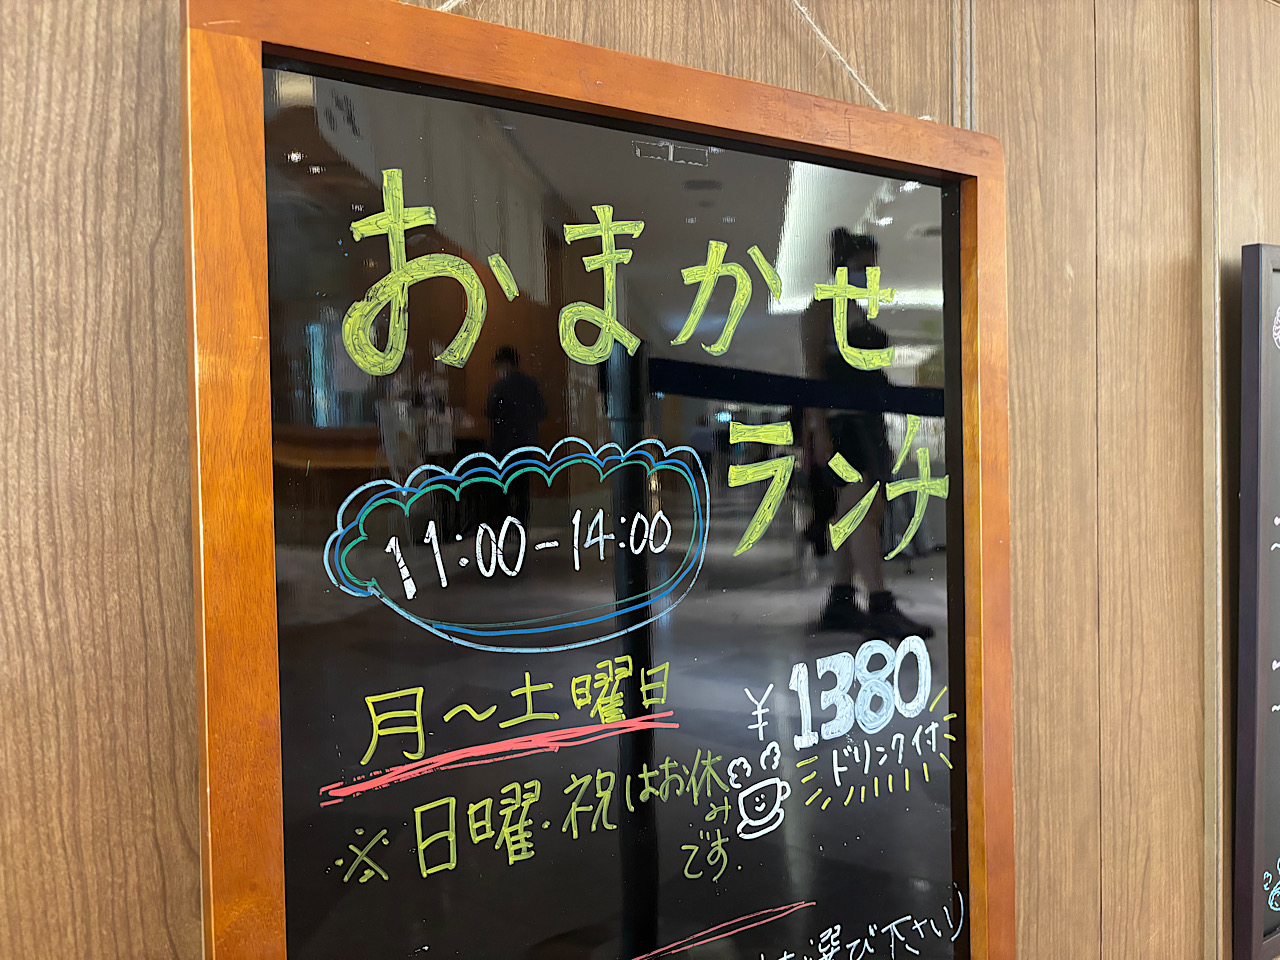 おまかせ
ランチ
11:00-14:00
月〜土曜日
¥1380
ドリンク付
※日曜・祝はお休み
です。
選び下さい)